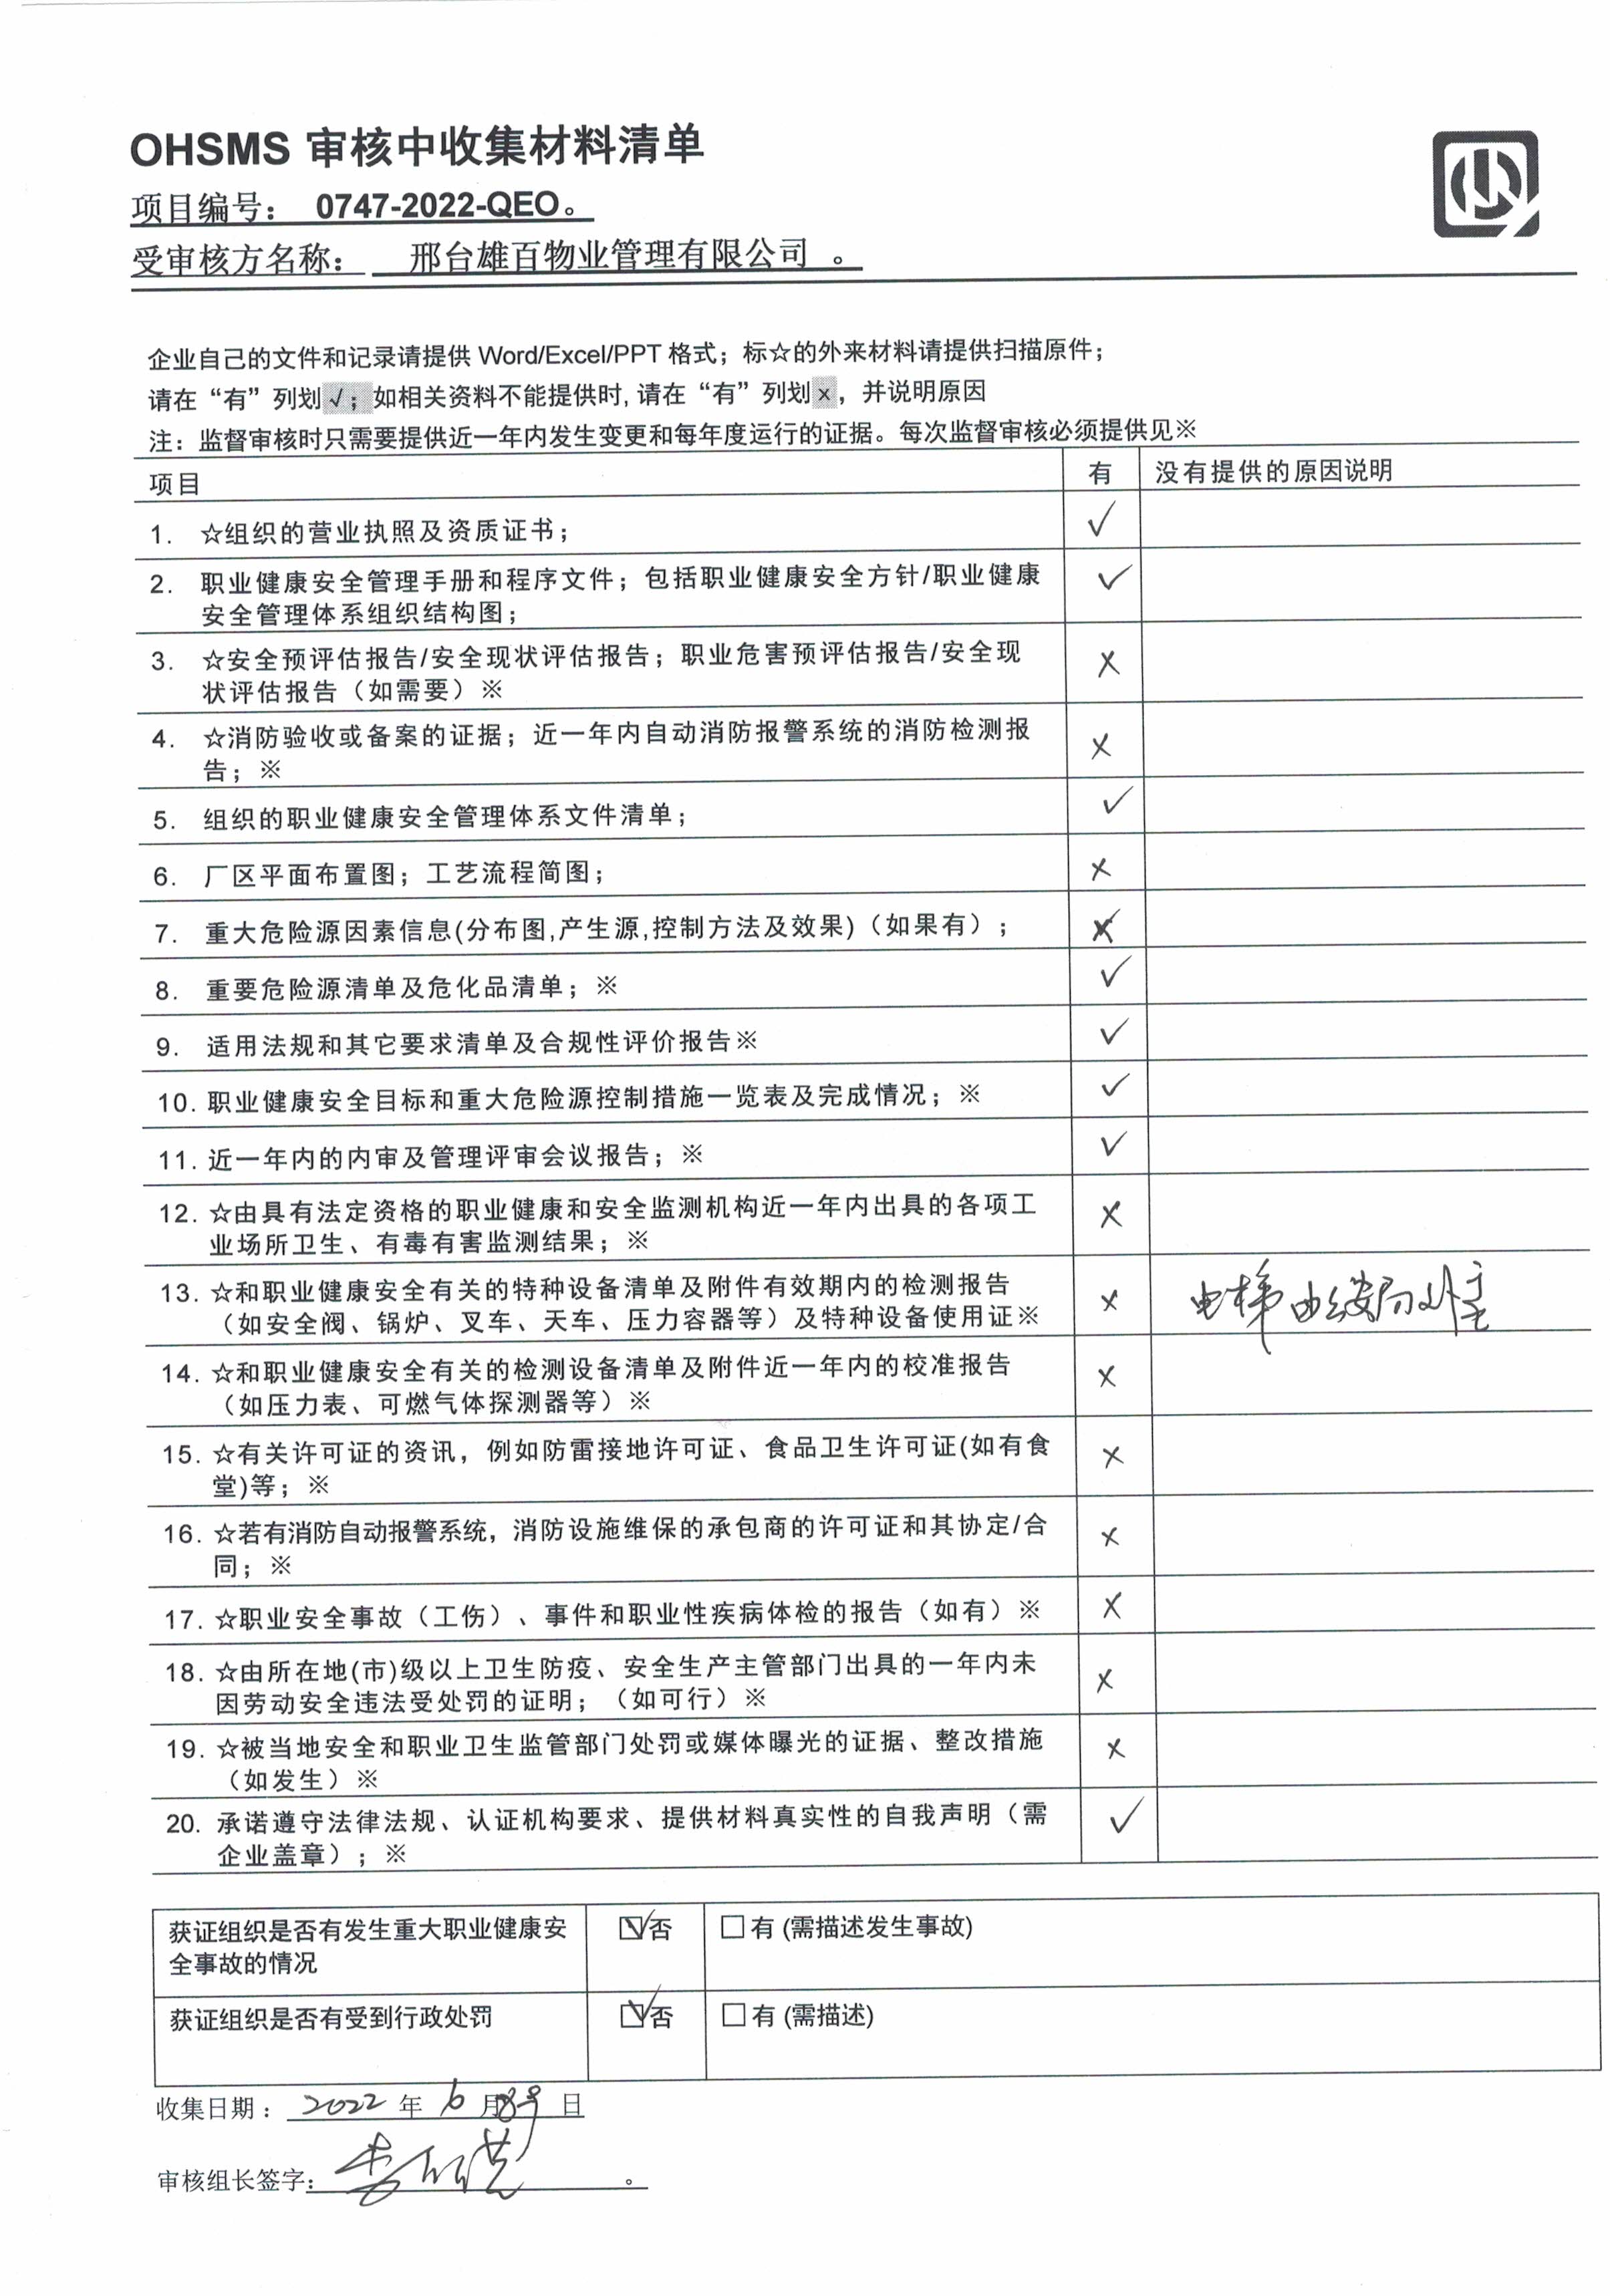 OHSMS 审核中收集材料清单
项目编号： 0747-2022-QEO。
受审核方名称： 邢台雄百物业管理有限公司 。
企业自己的文件和记录请提供 Word/Excel/PPT 格式；标☆的外来材料请提供扫描原件；
请在“有”列划√；如相关资料不能提供时,请在“有”列划x，并说明原因
注：监督审核时只需要提供近一年内发生变更和每年度运行的证据。每次监督审核必须提供见※
项目 有 没有提供的原因说明
1. ☆组织的营业执照及资质证书； ✓
2. 职业健康安全管理手册和程序文件；包括职业健康安全方针/职业健康 ✓
安全管理体系组织结构图；
3. ☆安全预评估报告/安全现状评估报告；职业危害预评估报告/安全现 ×
状评估报告（如需要）※
4. ☆消防验收或备案的证据；近一年内自动消防报警系统的消防检测报 ×
告；※
5. 组织的职业健康安全管理体系文件清单； ✓
6. 厂区平面布置图；工艺流程简图； ×
7. 重大危险源因素信息(分布图,产生源,控制方法及效果)（如果有）；
8. 重要危险源清单及危化品清单；※ ✓
9. 适用法规和其它要求清单及合规性评价报告※ ✓
10. 职业健康安全目标和重大危险源控制措施一览表及完成情况；※ ✓
11. 近一年内的内审及管理评审会议报告；※ ✓
12. ☆由具有法定资格的职业健康和安全监测机构近一年内出具的各项工 ×
业场所卫生、有毒有害监测结果；※
13. ☆和职业健康安全有关的特种设备清单及附件有效期内的检测报告 × 电梯由
（如安全阀、锅炉、叉车、天车、压力容器等）及特种设备使用证※
14. ☆和职业健康安全有关的检测设备清单及附件近一年内的校准报告 ×
（如压力表、可燃气体探测器等）※
15. ☆有关许可证的资讯，例如防雷接地许可证、食品卫生许可证(如有食 ×
堂)等；※
16. ☆若有消防自动报警系统，消防设施维保的承包商的许可证和其协定/合 ×
同；※
17. ☆职业安全事故（工伤）、事件和职业性疾病体检的报告（如有）※ ×
18. ☆由所在地(市)级以上卫生防疫、安全生产主管部门出具的一年内未 ×
因劳动安全违法受处罚的证明；（如可行）※
19. ☆被当地安全和职业卫生监管部门处罚或媒体曝光的证据、整改措施 ×
（如发生）※
20. 承诺遵守法律法规、认证机构要求、提供材料真实性的自我声明（需 ✓
企业盖章）；※
获证组织是否有发生重大职业健康安 ☑否 □有 (需描述发生事故)
全事故的情况
获证组织是否有受到行政处罚 ☑否 □有 (需描述)
收集日期： 2022 年 6 月 8号 日
审核组长签字： 。